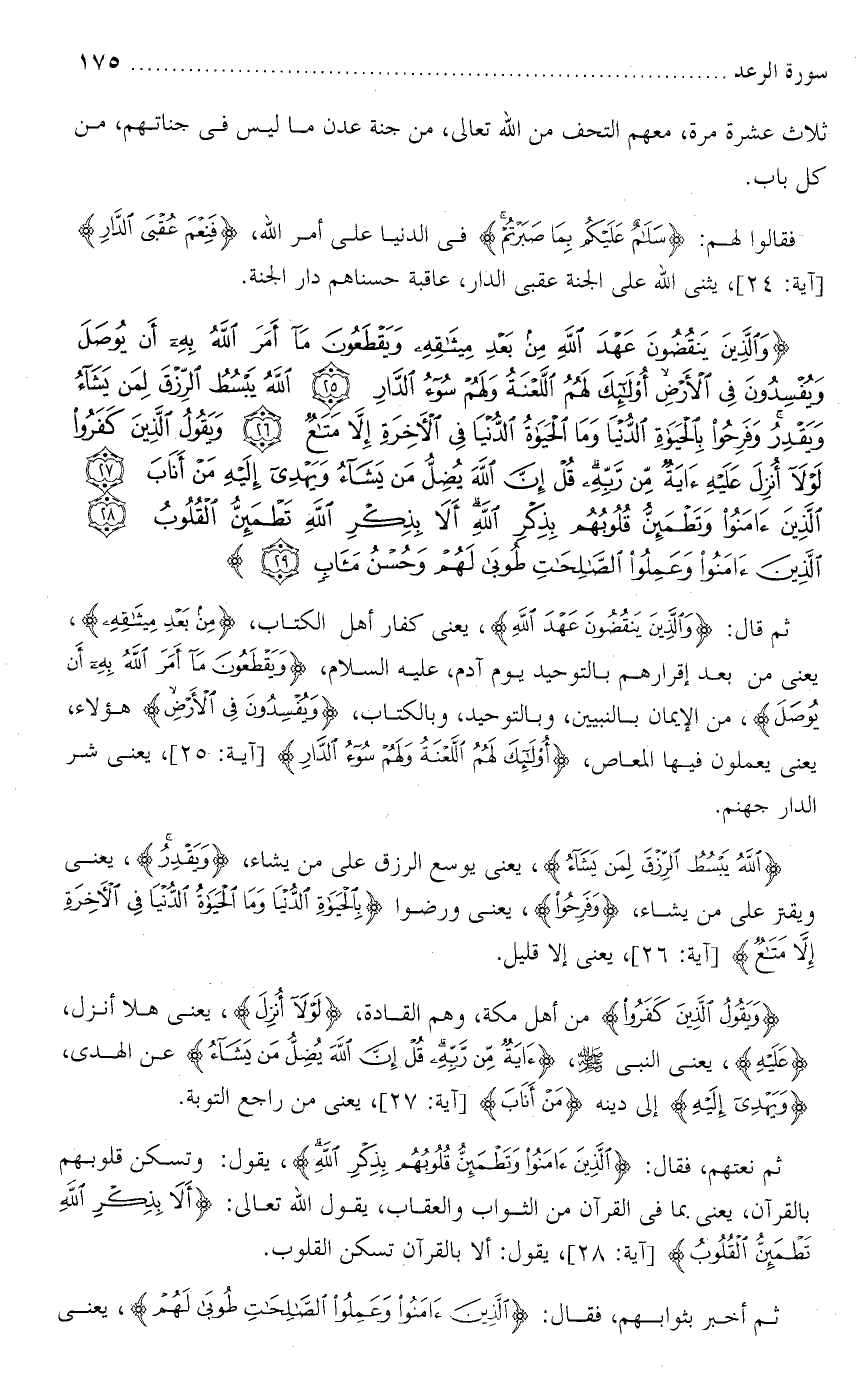 سورة الرعد ........................................................................ ١٧٥
ثلاث عشرة مرة، معهم التحف من الله تعالى، من جنة عدن ما ليس فى جناتهم، من
كل باب.
فقالوا لهم: ﴿سَلَٰمٌ عَلَيْكُم بِمَا صَبَرْتُمْ ۚ﴾ فى الدنيا على أمر الله، ﴿فَنِعْمَ عُقْبَى ٱلدَّارِ﴾
[آية: ٢٤]، يثنى الله على الجنة عقبى الدار، عاقبة حسناهم دار الجنة.
﴿وَٱلَّذِينَ يَنقُضُونَ عَهْدَ ٱللَّهِ مِنۢ بَعْدِ مِيثَٰقِهِۦ وَيَقْطَعُونَ مَآ أَمَرَ ٱللَّهُ بِهِۦٓ أَن يُوصَلَ
وَيُفْسِدُونَ فِى ٱلْأَرْضِ ۙ أُو۟لَٰٓئِكَ لَهُمُ ٱللَّعْنَةُ وَلَهُمْ سُوٓءُ ٱلدَّارِ ٢٥ ٱللَّهُ يَبْسُطُ ٱلرِّزْقَ لِمَن يَشَآءُ
وَيَقْدِرُ ۚ وَفَرِحُوا۟ بِٱلْحَيَوٰةِ ٱلدُّنْيَا وَمَا ٱلْحَيَوٰةُ ٱلدُّنْيَا فِى ٱلْءَاخِرَةِ إِلَّا مَتَٰعٌ ٢٦ وَيَقُولُ ٱلَّذِينَ كَفَرُوا۟
لَوْلَآ أُنزِلَ عَلَيْهِ ءَايَةٌ مِّن رَّبِّهِۦ ۗ قُلْ إِنَّ ٱللَّهَ يُضِلُّ مَن يَشَآءُ وَيَهْدِىٓ إِلَيْهِ مَنْ أَنَابَ ٢٧
ٱلَّذِينَ ءَامَنُوا۟ وَتَطْمَئِنُّ قُلُوبُهُم بِذِكْرِ ٱللَّهِ ۗ أَلَا بِذِكْرِ ٱللَّهِ تَطْمَئِنُّ ٱلْقُلُوبُ ٢٨
ٱلَّذِينَ ءَامَنُوا۟ وَعَمِلُوا۟ ٱلصَّٰلِحَٰتِ طُوبَىٰ لَهُمْ وَحُسْنُ مَـَٔابٍ ٢٩ ﴾
ثم قال: ﴿وَٱلَّذِينَ يَنقُضُونَ عَهْدَ ٱللَّهِ﴾، يعنى كفار أهل الكتاب، ﴿مِنۢ بَعْدِ مِيثَٰقِهِۦ﴾،
يعنى من بعد إقرارهم بالتوحيد يوم آدم، عليه السلام، ﴿وَيَقْطَعُونَ مَآ أَمَرَ ٱللَّهُ بِهِۦٓ أَن
يُوصَلَ﴾، من الإيمان بالنبيين، وبالتوحيد، وبالكتاب، ﴿وَيُفْسِدُونَ فِى ٱلْأَرْضِ ۙ﴾ هؤلاء،
يعنى يعملون فيها المعاص، ﴿أُو۟لَٰٓئِكَ لَهُمُ ٱللَّعْنَةُ وَلَهُمْ سُوٓءُ ٱلدَّارِ﴾ [آية: ٢٥]، يعنى شر
الدار جهنم.
﴿ٱللَّهُ يَبْسُطُ ٱلرِّزْقَ لِمَن يَشَآءُ﴾، يعنى يوسع الرزق على من يشاء، ﴿وَيَقْدِرُ ۚ﴾، يعنى
ويقتر على من يشاء، ﴿وَفَرِحُوا۟﴾، يعنى ورضوا ﴿بِٱلْحَيَوٰةِ ٱلدُّنْيَا وَمَا ٱلْحَيَوٰةُ ٱلدُّنْيَا فِى ٱلْءَاخِرَةِ
إِلَّا مَتَٰعٌ﴾ [آية: ٢٦]، يعنى إلا قليل.
﴿وَيَقُولُ ٱلَّذِينَ كَفَرُوا۟﴾ من أهل مكة، وهم القادة، ﴿لَوْلَآ أُنزِلَ﴾، يعنى هلا أنزل،
﴿عَلَيْهِ﴾، يعنى النبى ﷺ، ﴿ءَايَةٌ مِّن رَّبِّهِۦ ۗ قُلْ إِنَّ ٱللَّهَ يُضِلُّ مَن يَشَآءُ﴾ عن الهدى،
﴿وَيَهْدِىٓ إِلَيْهِ﴾ إلى دينه ﴿مَنْ أَنَابَ﴾ [آية: ٢٧]، يعنى من راجع التوبة.
ثم نعتهم، فقال: ﴿ٱلَّذِينَ ءَامَنُوا۟ وَتَطْمَئِنُّ قُلُوبُهُم بِذِكْرِ ٱللَّهِ ۗ﴾، يقول: وتسكن قلوبهم
بالقرآن، يعنى بما فى القرآن من الثواب والعقاب، يقول الله تعالى: ﴿أَلَا بِذِكْرِ ٱللَّهِ
تَطْمَئِنُّ ٱلْقُلُوبُ﴾ [آية: ٢٨]، يقول: ألا بالقرآن تسكن القلوب.
ثم أخبر بثوابهم، فقال: ﴿ٱلَّذِينَ ءَامَنُوا۟ وَعَمِلُوا۟ ٱلصَّٰلِحَٰتِ طُوبَىٰ لَهُمْ﴾، يعنى